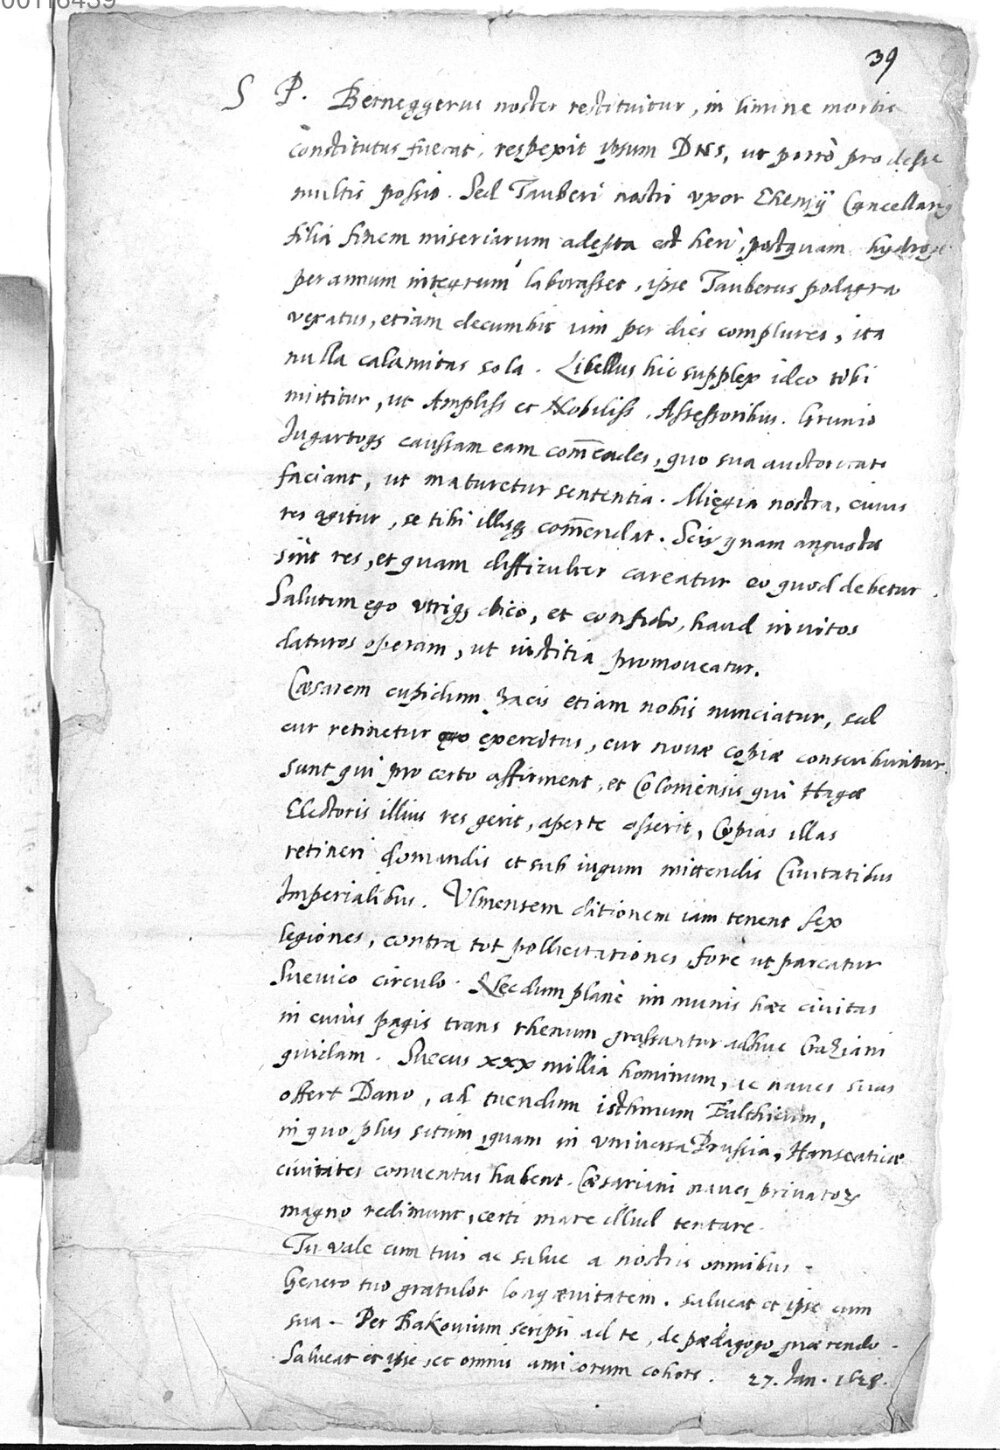 00116439
39
S P. Berneggerus noster restituitur, in limine mortis
constitutus fuerat, respexit ipsum DNS, ut porrò prodesse
multis possit. Sed Tauberi nostri uxor Ehemij Cancellarij
filia finem miseriarum adepta est heri, postquam hydrope
per annum integrum laborasset, ipse Tauberus podagra
vexatus, etiam decumbit iam per dies complures, ita
nulla calamitas sola. Libellus hic supplex ideo tibi
mittitur, ut Ampliss et Nobiliss. Assessoribus. Grunio
Iugartoqȝ caussam eam com̄endes, quo sua auctoritate
faciant, ut maturetur sententia. Miegia nostra, cuius
res agitur, se tibi illisqȝ com̄endat. Scis quam angustae
sint res, et quam difficulter careatur eo quod debetur.
Salutem ego utriqȝ dico, et confido, haud invitos
daturos operam, ut iustitia promoveatur.
Caesarem cupidum pacis etiam nobis nunciatur, sed
cur retinetur exercitus, cur novae copiae conscribuntur.
Sunt qui pro certo affirment, et Coloniensis qui Hagae
Electoris illius res gerit, aperte asserit, Copias illas
retineri domandis et sub iugum mittendis Civitatibus
Imperialibus. Ulmensem ditionem iam tenent sex
legiones, contra tot pollicitationes, fore ut parcatur
Suevico circulo. Necdum planè immunis haec civitas
in cuius pagis trans Rhenum grassantur adhuc Craziani
quidam. Suecus xxx millia hominum, ac naves suas
offert Dano, ad tuendum isthmum Balthicum,
in quo plus situm, quam in universa Prussia, Hanseaticae
civitates conventus habent. Caesariani naves privatorȝ
magno redimunt, certi mare illud tentare.
Tu vale cum tuis ac salve a nostris omnibus.
Genero tuo gratulor longaevitatem. salveat et ipse cum
sua. Per Bakovium scripsi ad te, de paedagogo quaerendo.
Salveat et ipse sec omnis amicorum cohors. 27. Jan. 1628.